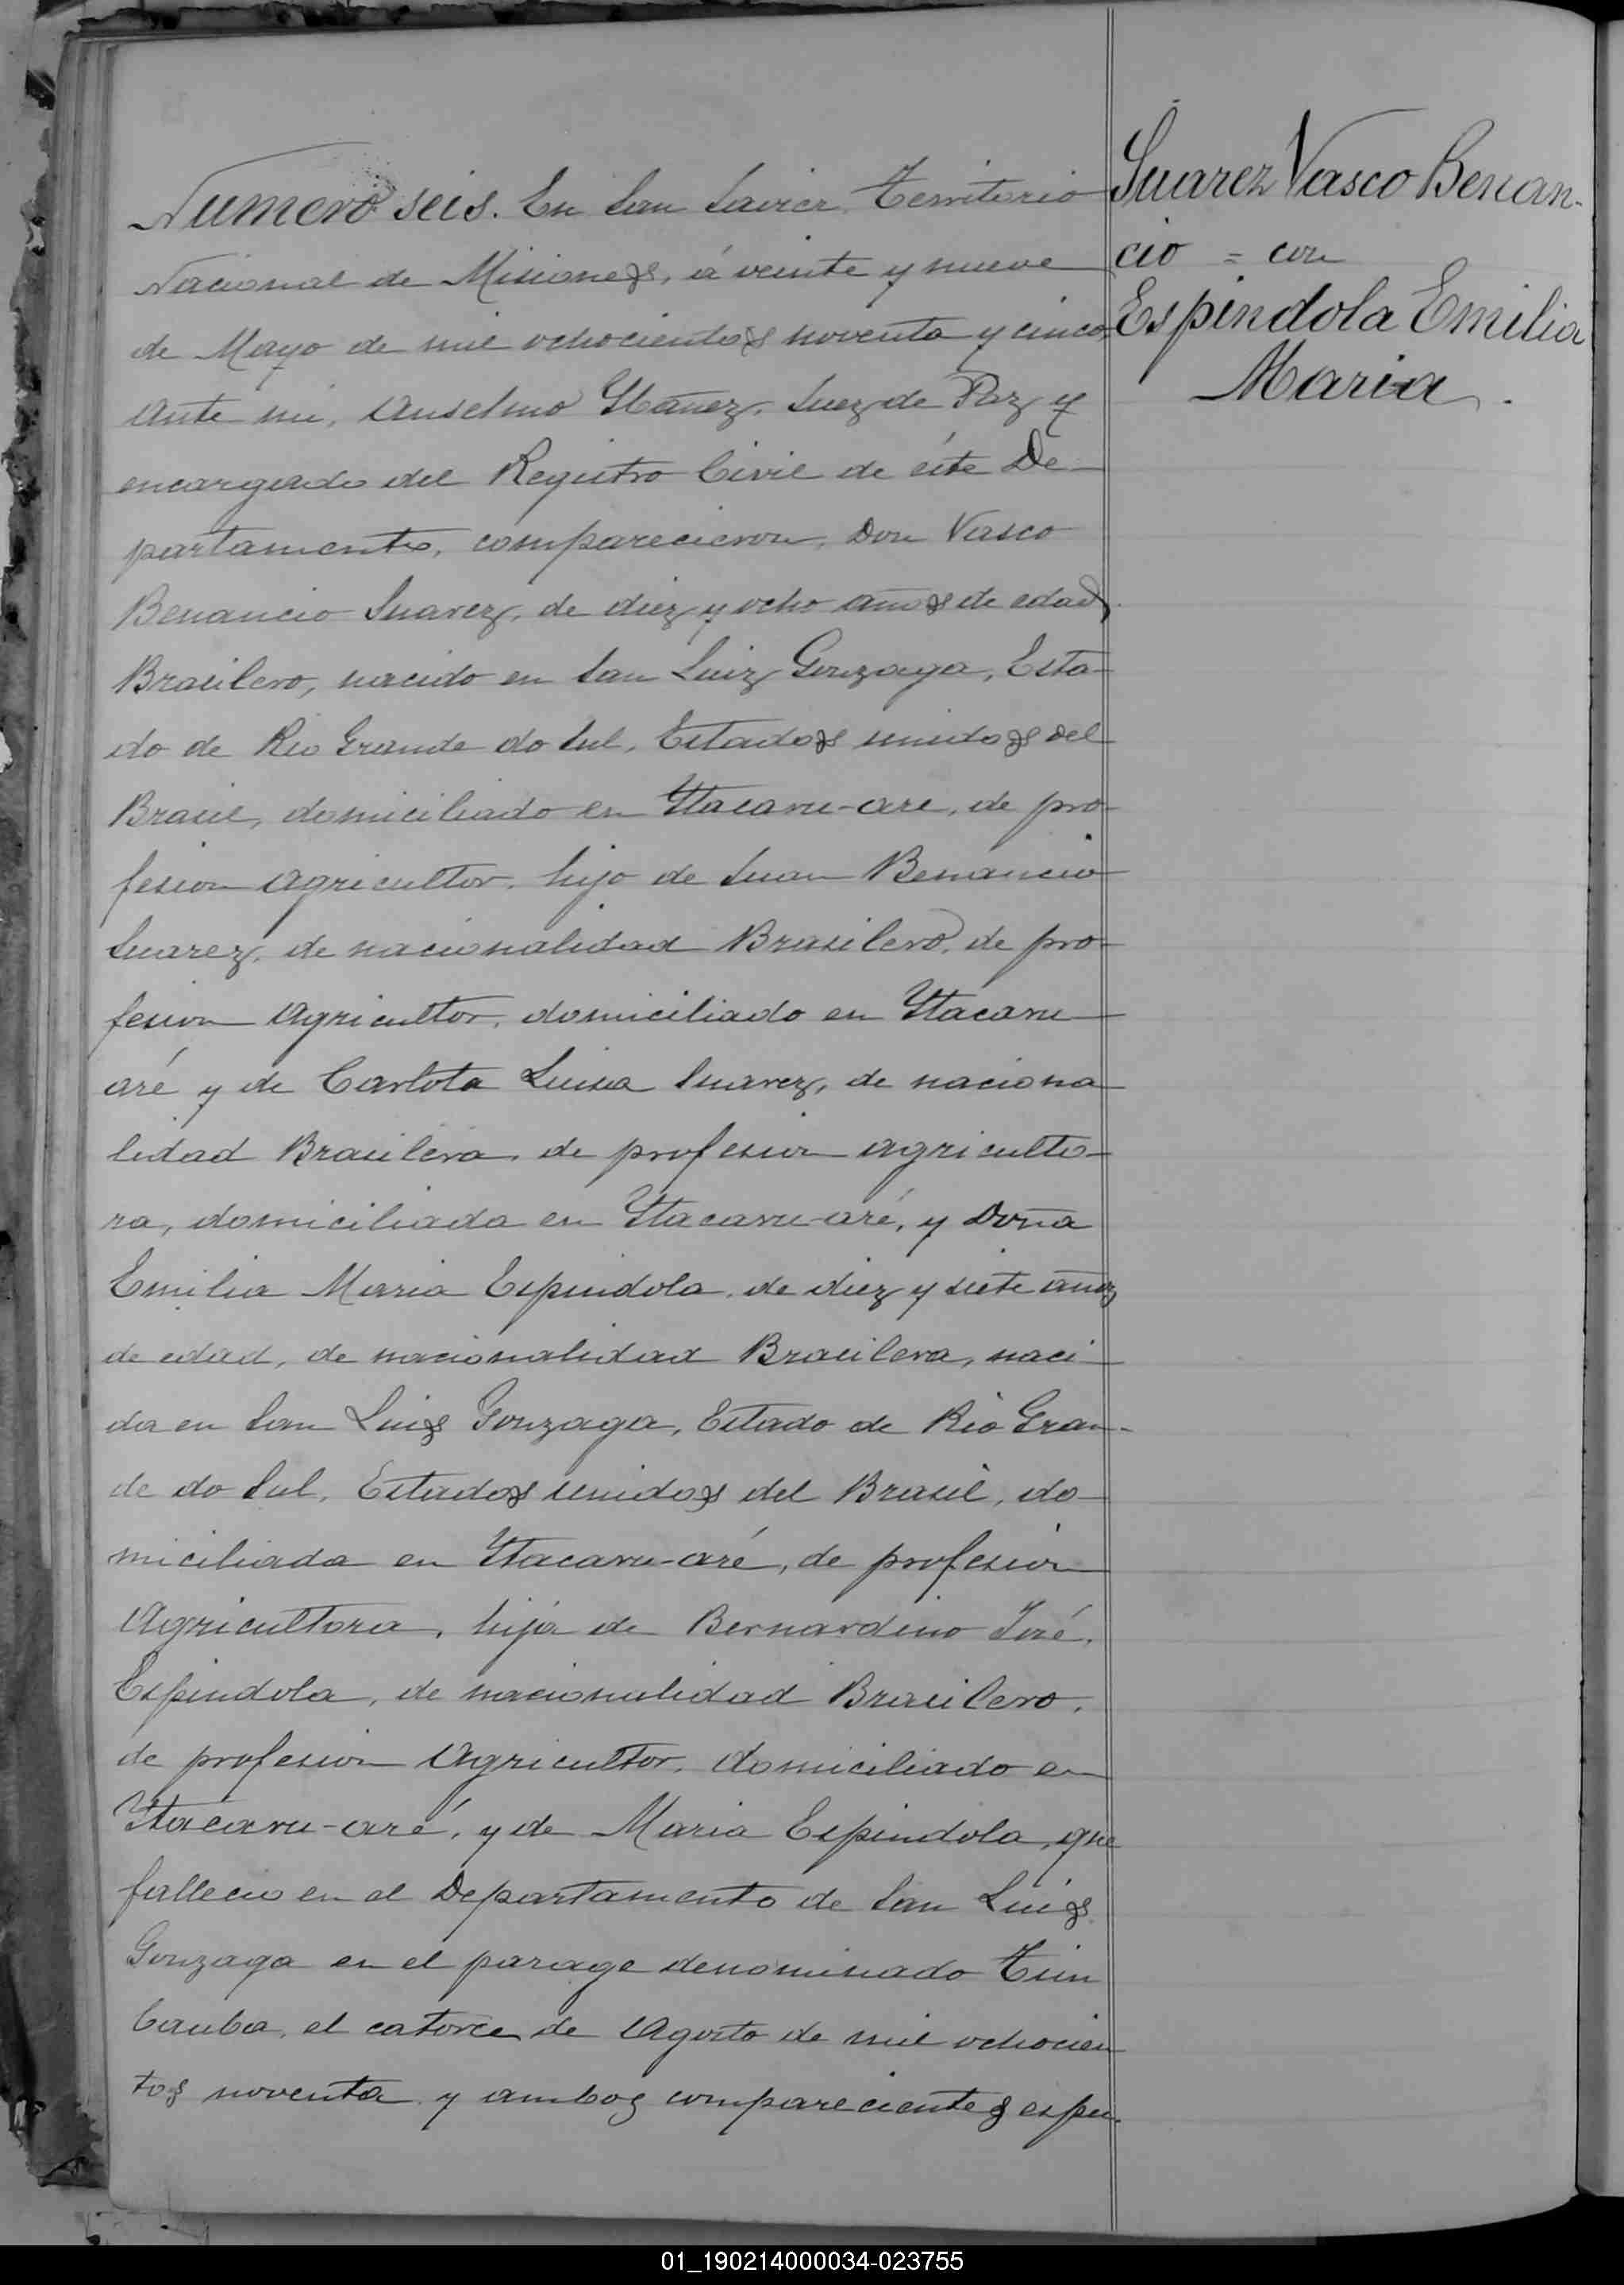 Numero seis. En San Javier, Territorio
Nacional de Misiones, á veinte y nueve
de Mayo de mil ochocientos noventa y cinco,
Ante mi, Anselmo Ybañez, Juez de Paz y
encargado del Registro Civil de éste De-
partamento, comparecieron, Don Vasco
Benancio Suarez, de diez y ocho años de edad,
Brasilero, nacido en San Luiz Gonzaga, Esta-
do de Rio Grande do Sul, Estados unidos del
Brasil, domiciliado en Ytacaru-are, de pro-
fesion Agricultor, hijo de Juan Benancio
Suarez, de nacionalidad Brasilero, de pro-
fesion Agricultor, domiciliado en Ytacaru
aré y de Carlota Luisa Suarez, de naciona
lidad Brasilera, de profesion agriculto-
ra, domiciliada en Ytacaru-aré, y Doña
Emilia Maria Espindola, de diez y siete años
de edad, de nacionalidad Brasilera, naci-
da en San Luis Gonzaga, Estado de Rio Gran-
de do Sul, Estados unidos del Brasil, do-
miciliada en Ytacaru-aré, de profesion
Agricultora, hija de Bernardino José
Espindola, de nacionalidad Brasilero,
de profesion Agricultor, domiciliado en
Ytacaru-aré, y de Maria Espindola, que
fallecio en el Departamento de San Luis
Gonzaga en el parage denominado Tim
bauba, el catorce de Agosto de mil ochocien
tos noventa y ambos comparecientes espu-
Suarez Vasco Benan-
cio = con
Espindola Emilia
Maria.
01_190214000034-023755